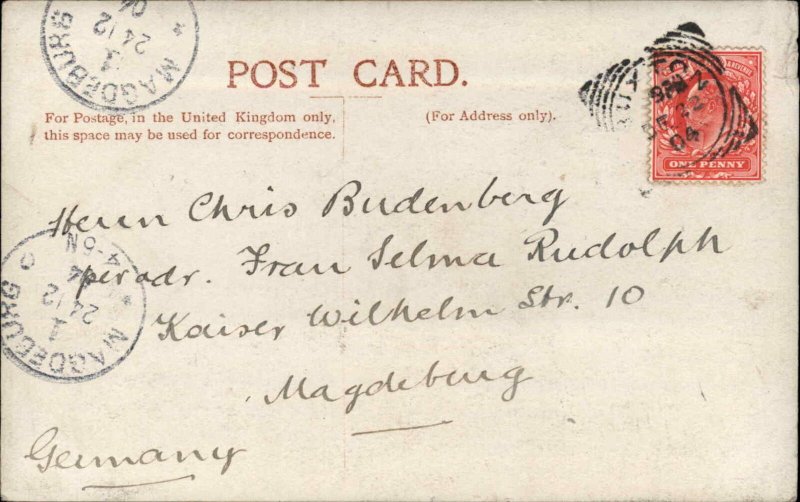 MAGDEBURG
1
24 12
POST CARD.
For Postage, in the United Kingdom only,
this space may be used for correspondence.
(For Address only).
BUXTON
DE 22
04
ONE PENNY
Herrn Chris Budenberg
per adr. Frau Selma Rudolph
Kaiser Wilhelm Str. 10
Magdeburg
Germany
MAGDEBURG
1
24 12
04
4-5N